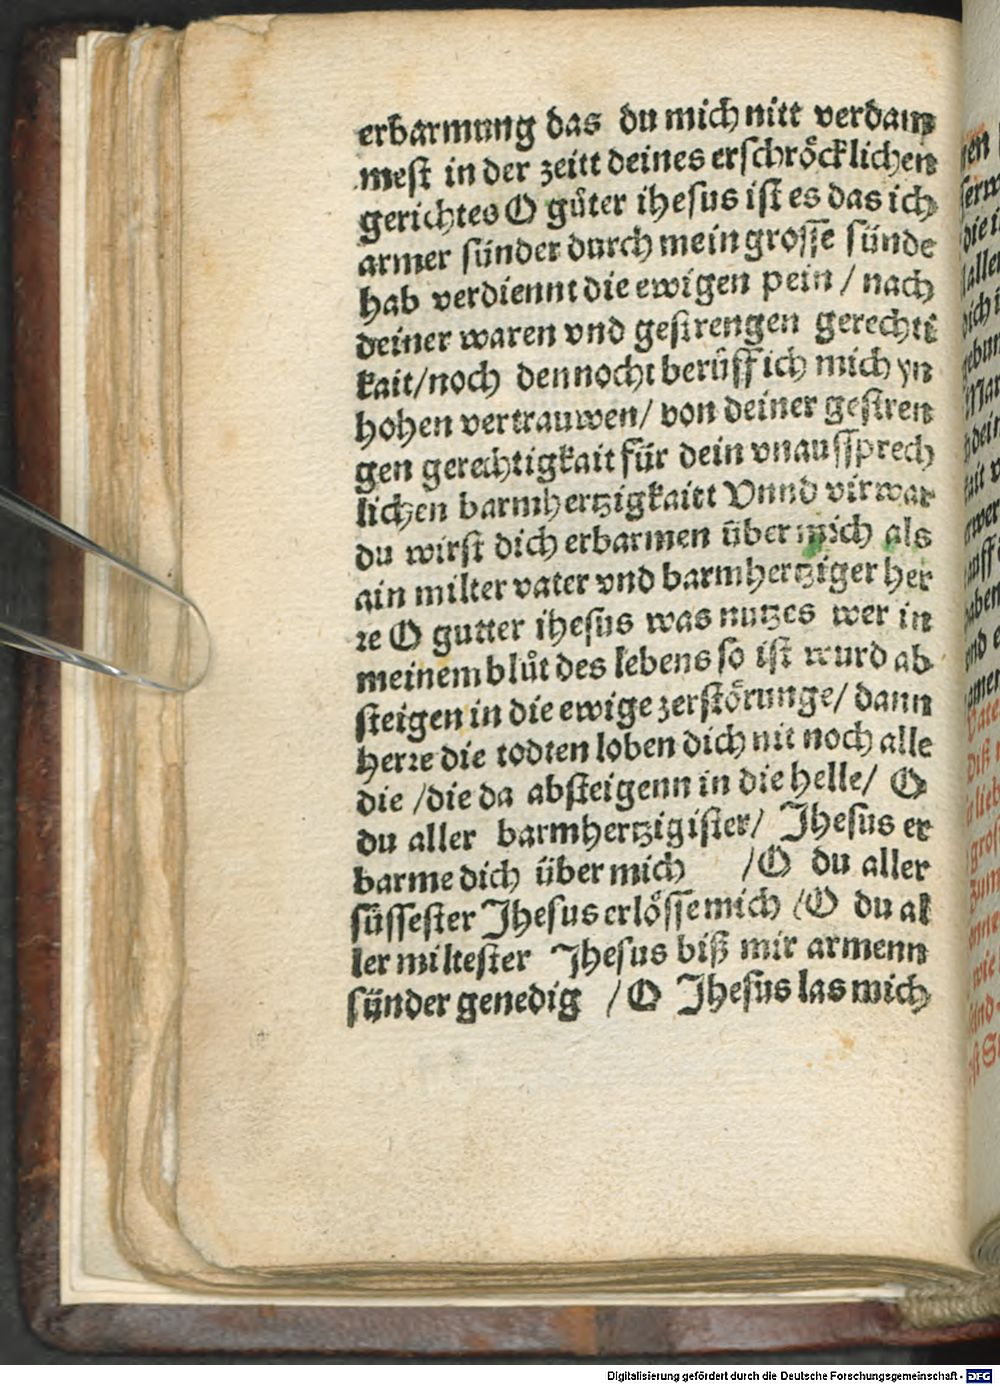 erbarmung das du mich nitt verdam
mest in der zeitt deines erschröcklichen
gerichtes O gůter ihesus ist es das ich
armer sünder durch mein grosse sünde
hab verdiennt die ewigen pein / nach
deiner waren vnd gestrengen gerechti
kait/noch dennocht berůff ich mich yn
hohen vertrauwen/ von deiner gestren
gen gerechtigkait für dein vnaussprech
lichen barmhertzigkaitt Vnnd vir war
du wirst dich erbarmen über mich als
ain milter vater vnd barmhertziger her
re O gutter ihesus was nutzes wer in
meinem blůt des lebens so ist wurd ab
steigen in die ewige zerstörunge/ dann
herre die todten loben dich nit noch alle
die /die da absteigenn in die helle/ O
du aller barmhertzigister/ Jhesus er
barme dich über mich /O du aller
süssester Jhesus erlösse mich /O du al
ler miltester Jhesus biß mir armenn
sünder genedig /O Jhesus las mich
Digitalisierung gefördert durch die Deutsche Forschungsgemeinschaft - DFG